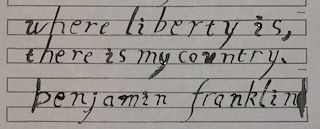 where liberty is,
there is my country.
benjamin franklin